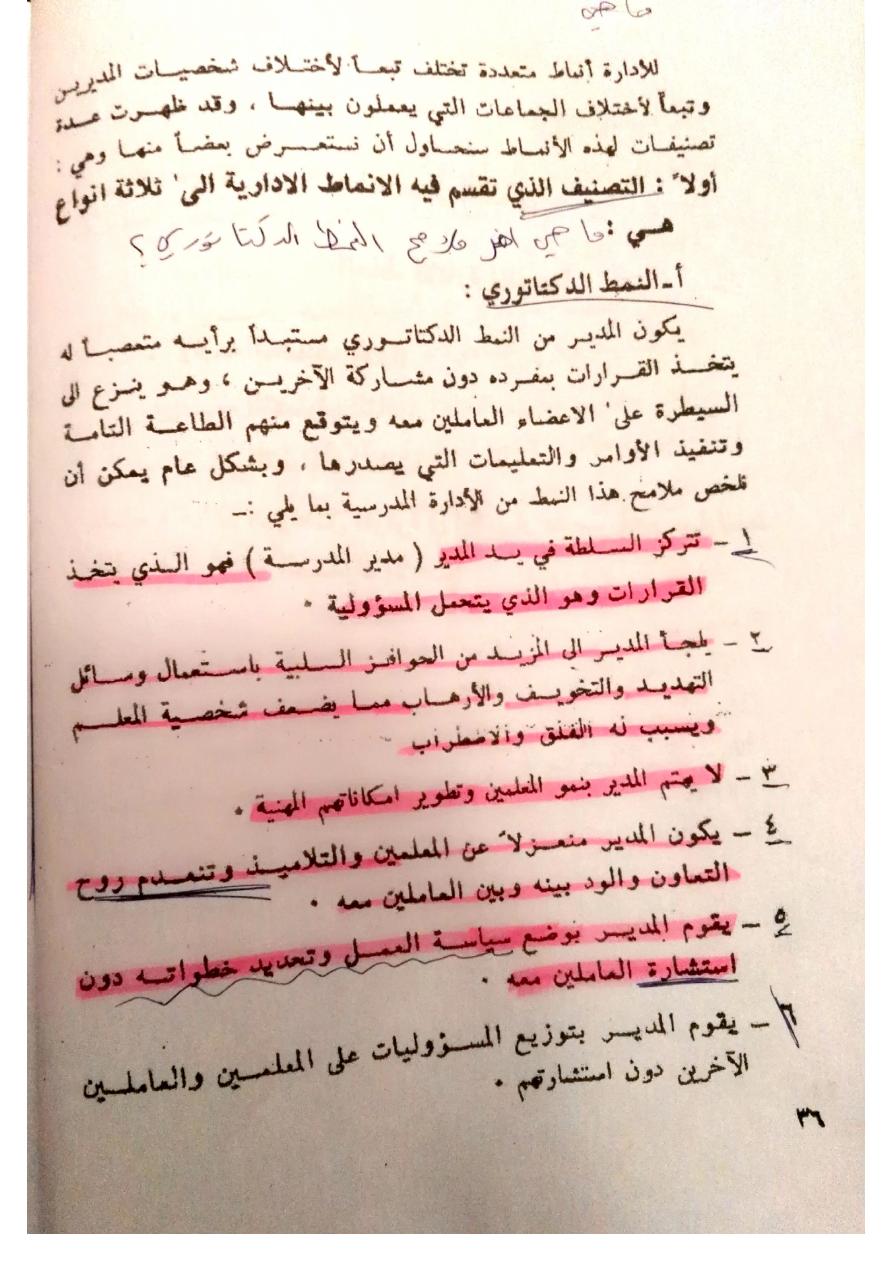 ما هي
للأدارة أنماط متعددة تختلف تبعاً لأختلاف شخصيات المديرين
وتبعاً لأختلاف الجماعات التي يعملون بينها ، وقد ظهرت عدة
تصنيفات لهذه الأنماط سنحاول أن نستعرض بعضاً منها وهي :
أولاً : التصنيف الذي تقسم فيه الانماط الادارية الى ثلاثة انواع
هي : ما هي اهم ملامح النمط الدكتاتوري ؟
أ ـ النمط الدكتاتوري :
يكون المدير من النمط الدكتاتوري مستبدأ برأيه متعصباً له
يتخذ القرارات بمفرده دون مشاركة الآخرين ، وهو ينزع الى
السيطرة على الاعضاء العاملين معه ويتوقع منهم الطاعة التامة
وتنفيذ الأوامر والتعليمات التي يصدرها ، وبشكل عام يمكن أن
نلخص ملامح هذا النمط من الأدارة المدرسية بما يلي :ـ
١ ـ تتركز السلطة في يد المدير ( مدير المدرسة ) فهو الذي يتخذ
القرارات وهو الذي يتحمل المسؤولية .
٢ ـ يلجأ المدير الى المزيد من الحوافز السلبية باستعمال وسائل
التهديد والتخويف والأرهاب مما يضعف شخصية المعلم
ويسبب له القلق والاضطراب
٣ ـ لا يهتم المدير بنمو المعلمين وتطوير امكاناتهم المهنية .
٤ ـ يكون المدير منعزلاً عن المعلمين والتلاميذ وتنعدم روح
التعاون والود بينه وبين العاملين معه .
٥ ـ يقوم المدير بوضع سياسة العمل وتحديد خطواته دون
استشارة العاملين معه .
٦ ـ يقوم المدير بتوزيع المسؤوليات على المعلمين والعاملين
الآخرين دون استشارتهم .
٣٦